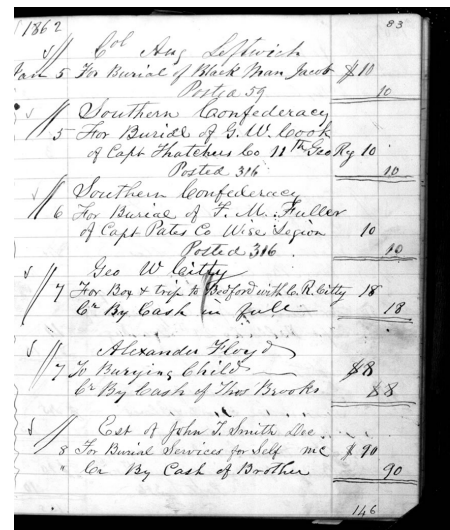 1862
83
Col Aug Leftwich
Jan 5 For Burial of Black Man Jacob $10
Posted 59 10
Southern Confederacy
5 For Burial of G. W. Cook
of Capt Thatchers Co 11th Geo Rg 10
Posted 316 10
Southern Confederacy
6 For Burial of F. M. Fuller
of Capt Pates Co Wise Legion 10
Posted 316 10
Geo W Citty
7 For Box & trip to Bedford with C. R. Citty 18
Cr By Cash in full 18
Alexander Floyd
7 To Burying Child $8
Cr By Cash of Thos Brooks $8
Est of John T. Smith Dec
8 For Burial Services for Self mc $90
" Cr By Cash of Brother 90
146